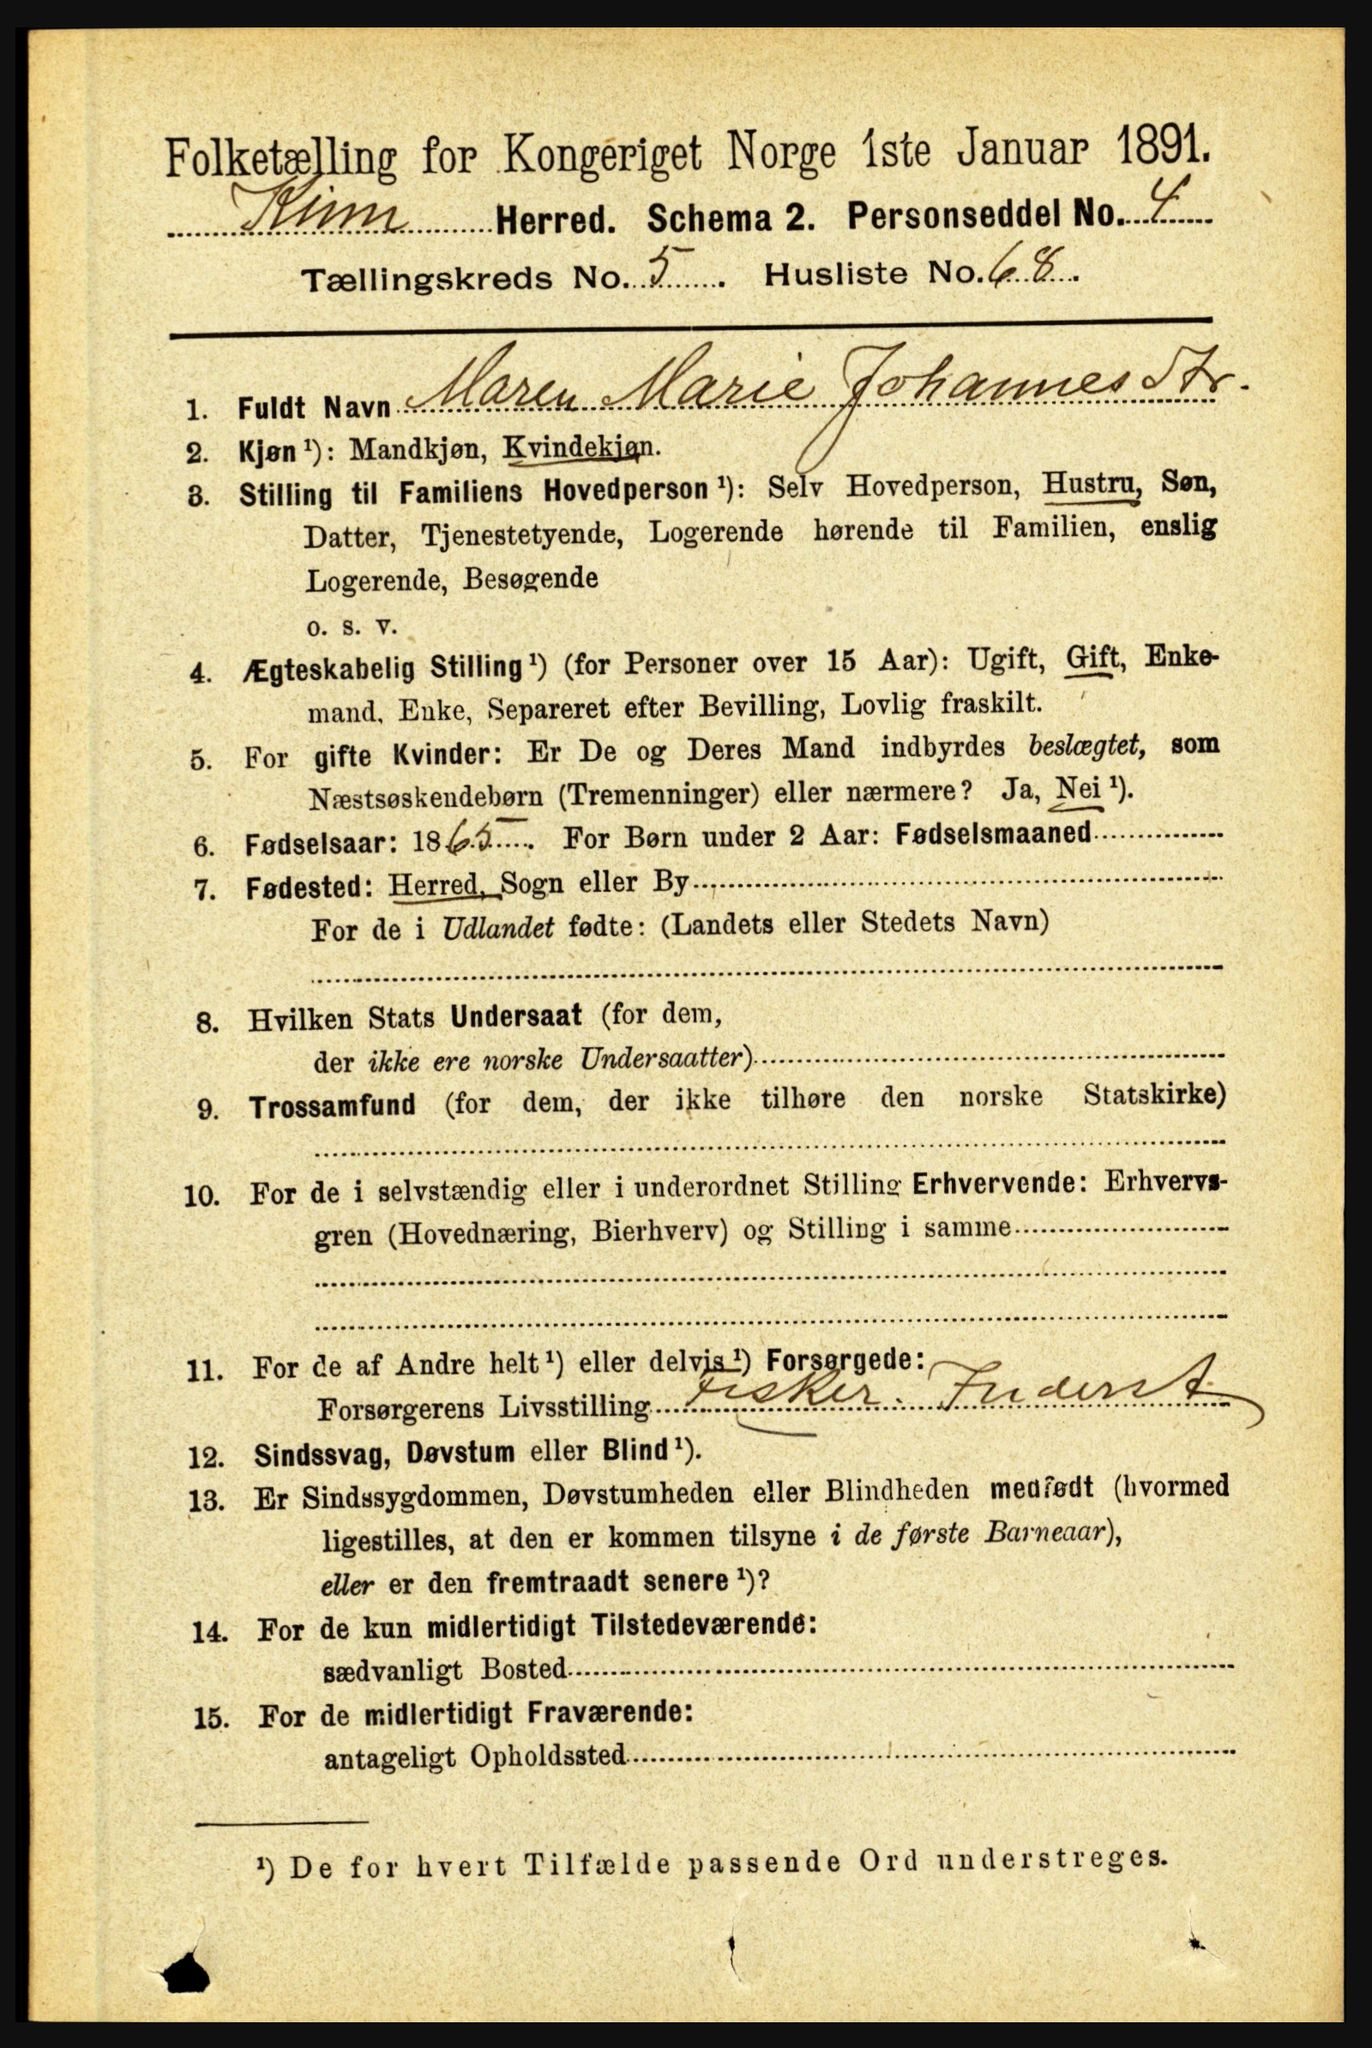 Folketælling for Kongeriget Norge 1ste Januar 1891.
Kinn Herred. Schema 2. Personseddel No. 4
Tællingskreds No. 5. Husliste No. 68.
1. Fuldt Navn Maren Marie Johannes Dtr.
2. Kjøn ¹): Mandkjøn, Kvindekjøn.
3. Stilling til Familiens Hovedperson ¹): Selv Hovedperson, Hustru, Søn,
Datter, Tjenestetyende, Logerende hørende til Familien, enslig
Logerende, Besøgende
o. s. v.
4. Ægteskabelig Stilling ¹) (for Personer over 15 Aar): Ugift, Gift, Enke-
mand, Enke, Separeret efter Bevilling, Lovlig fraskilt.
5. For gifte Kvinder: Er De og Deres Mand indbyrdes beslægtet, som
Næstsøskendebørn (Tremenninger) eller nærmere? Ja, Nei ¹).
6. Fødselsaar: 1865. For Børn under 2 Aar: Fødselsmaaned
7. Fødested: Herred, Sogn eller By
For de i Udlandet fødte: (Landets eller Stedets Navn)
8. Hvilken Stats Undersaat (for dem,
der ikke ere norske Undersaatter)
9. Trossamfund (for dem, der ikke tilhøre den norske Statskirke)
10. For de i selvstændig eller i underordnet Stilling Erhvervende: Erhvervs-
gren (Hovednæring, Bierhverv) og Stilling i samme
11. For de af Andre helt ¹) eller delvis ¹) Forsørgede:
Forsørgerens Livsstilling Fisker. Inderst
12. Sindssvag, Døvstum eller Blind ¹).
13. Er Sindssygdommen, Døvstumheden eller Blindheden medfødt (hvormed
ligestilles, at den er kommen tilsyne i de første Barneaar),
eller er den fremtraadt senere ¹)?
14. For de kun midlertidigt Tilstedeværende:
sædvanligt Bosted
15. For de midlertidigt Fraværende:
antageligt Opholdssted
¹) De for hvert Tilfælde passende Ord understreges.